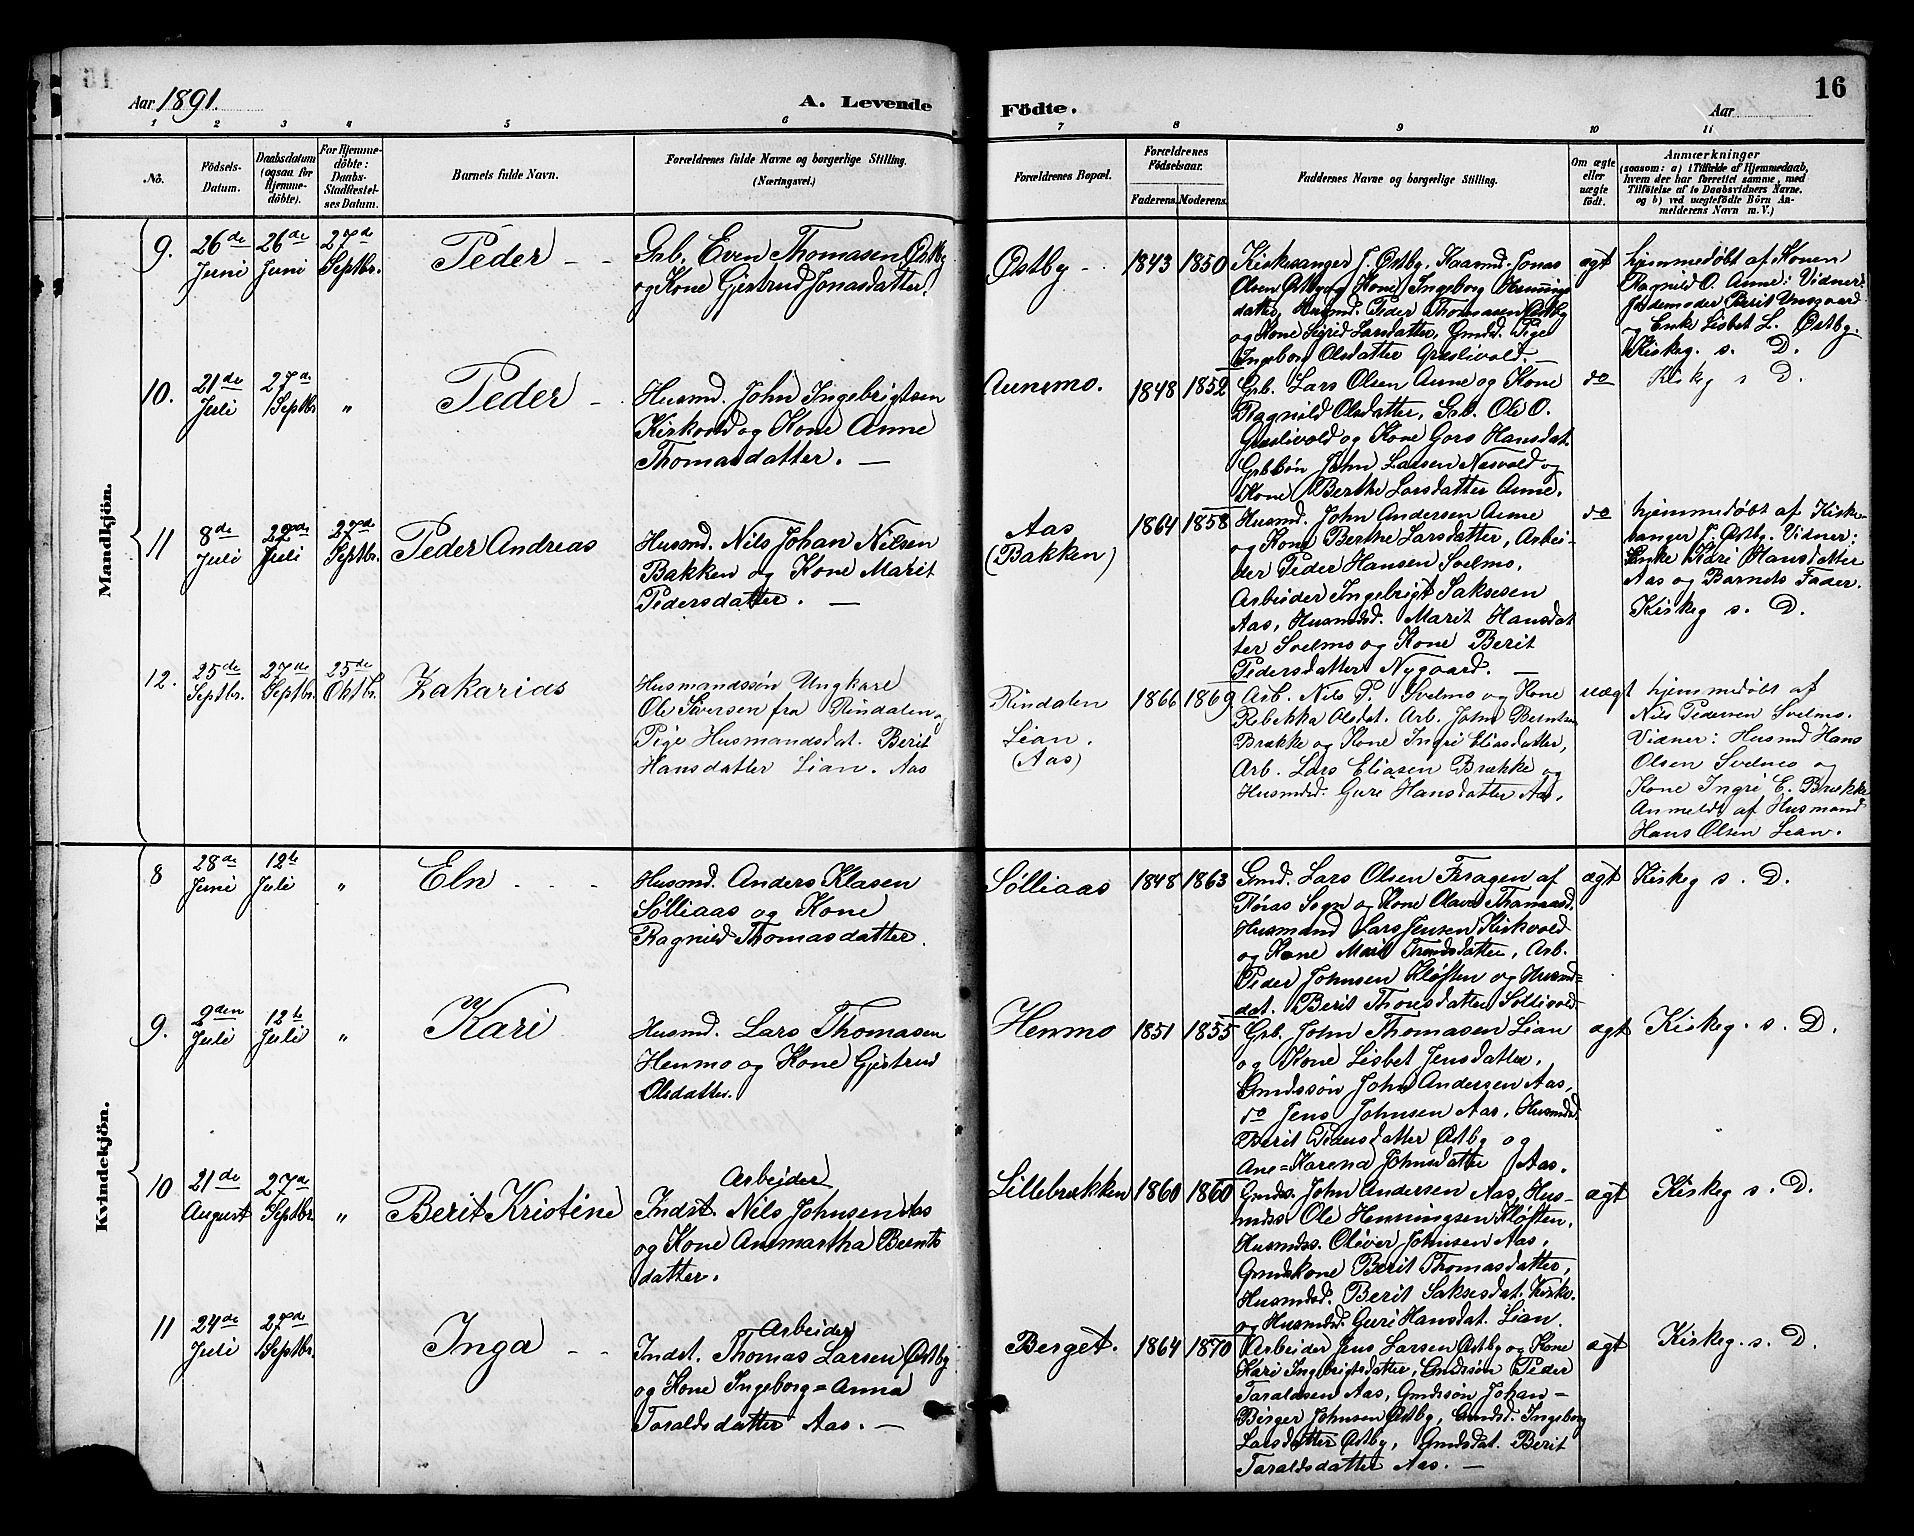 Aar 1891.
A. Levende
Födte.
Aar
16
1 2 3 4 5 6 7 8 9 10 11
No.
Födsels-Datum.
Daabsdatum (ogsaa for Hjemme-döbte).
For Hjemme-döbte: Daabs-Stadfæstel-ses Datum.
Barnets fulde Navn.
Forældrenes fulde Navne og borgerlige Stilling. (Næringsvei.)
Forældrenes Bopæl.
Forældrenes Födselsaar.
Faderens. Moderens.
Faddernes Navne og borgerlige Stilling.
Om ægte eller uægte födt.
Anmærkninger
(saasom: a) i Tilfælde af Hjemmedaab,
hvem der har forrettet samme, med
Tilföielse af to Daabsvidners Navne,
og b) ved uægtefödte Börn An-
melderens Navn m. V.)
Mandkjön.
9. 26de Juni 26de Juni 27de Septbr. Peder
Grb. Even Thomasen Østby
og Kone Gjertrud Jonasdatter.
Østby 1843 1850
Kirkesanger J. Østby, Kaarmd. Jonas
Olsen Østby og Kone Ingeborg Hennings
datter, Husmd. Peder Thomassen Østby
og Kone Sigrid Larsdatter, Gmds. Pige
Ingeborg Olsdatter Græslivold. —
ægt
hjemmedøbt af Konen
Ragnild O. Aune: Vidner:
Jordemoder Berit Unsgaard
og Enke Lisbet L. Østby.
Kirkeg. s. D.
10. 21de Juli 27de Septbr. " Peder
Husmd. John Ingebrigtsen
Kirkvold og Kone Anne
Thomasdatter. —
Aunemo. 1848 1852
Grb. Lars Olsen Aune og Kone
Ragnild Olsdatter, Grb. Ole O.
Græslivold og Kone Gors Hansdat.
Grbsøn John Larsen Næsvold og
Kone Berthe Larsdatter Aune.
do
Kirkeg s D.
11 8de Juli 22de Juli 27de Septbr. Peder Andreas
Husmd. Nils Johan Nilsen
Bakken og Kone Marit
Pedersdatter. —
Aas (Bakken) 1864 1858
Husmd. John Andersen Aune
og Kone Berthe Larsdatter, Arbei-
der Peder Hansen Svelmo.
Arbeider Ingebrigt Saksesen
Aas, Husmdsd. Marit Hansdat
ter Svelmo og Kone Berit
Pedersdatter Nygaard. —
do
hjemmedøbt af Kirke-
sanger J. Østby. Vidner:
Enke Kari Hansdatter
Aas og Barnets Fader.
Kirkeg s. D.
12. 25de Septbr. 27de Septbr. 25de Oktbr. Zakarias
Husmandssøn Ungkarl
Ole Siversen fra Rindalen og
Pige Husmandsdat. Berit
Hansdatter Lian. Aas
Rindalen Lian. (Aas) 1866 1869
Arb. Nils P. Svelmo og Kone
Rebekka Olsdat. Arb. John Berntsen
Brække og Kone Ingri Eliasdatter,
Arb. Lars Eliasen Brække og
Husmdsd. Guri Hansdatter Aas.
uægt
hjemmedøbt af
Nils Pedersen Svelmo.
Vidner: Husmd Hans
Olsen Svelmo og
Kone Ingri E. Brække
Anmeldt af Husmand
Hans Olsen Lian.
Kvindekjön.
8 28de Juni 12te Juli " Eln
Husmd. Anders Klasen
Sølliaas og Kone
Ragnild Thomasdatter.
Sølliaas 1848 1863
Gmd. Lars Olsen Feragen af
Røras Sogn og Kone Olava Thomasd.
Husmand Lars Jensen Kirkvold
og Kone Marit Trondsdatter, Arb.
Peder Johnsen Kløften og Husmd=
dat. Berit Thomsdatter Søllivold
ægt
Kirkeg s. D.
9. 2den Juli 12te Juli " Kari
Husmd. Lars Thomasen
Henmo og Kone Gjertrud
Olsdatter.
Henmo 1851 1855
Grb. John Thomasen Lian
og Kone Lisbet Jensdatter.
Gmdssøn John Andersen Aas,
do Jens Johnsen Aas. Husmdsd.
Berit Pedersdatter Østby og
Ane=Karena Johnsdatter Aas.
ægt
Kirkeg. s. D.
10 21de August 27de Septbr. " Berit Kristine
Arbeider
Indst. Nils Johnsen Aas
og Kone Anmartha Bernts
datter.
Lillebrækken 1860 1860
Gmds. John Andersen Aas, Hus-
mdss. Ole Henningsen Kløften.
Husmdss. Oliver Johnsen Aas.
Gmdskone Berit Thomasdatter,
Husmdsd. Berit Saksesdat. Kirkv.
og Husmdsd. Guri Hansdat. Lian.
ægt
Kirkeg s. D.
11 24de Juli 27de Septbr. Inga
Arbeider
Indst. Thomas Larsen Østby
og Kone Ingeborg=Anna
Taralds datter Aas. —
Berget. 1864 1870
Arbeider Jens Larsen Østby og Kone
Kari Ingebrigtsdatter, Gmdssøn Peder
Taraldsen Aas, Gmdssøn Johan=
Birger Johnsen Østby, Gmdsd. Ingeborg
Larsdatter Østby, Gmdsdat. Berit
Taraldsdatter Aas. —
ægt
Kirkeg. s. D.